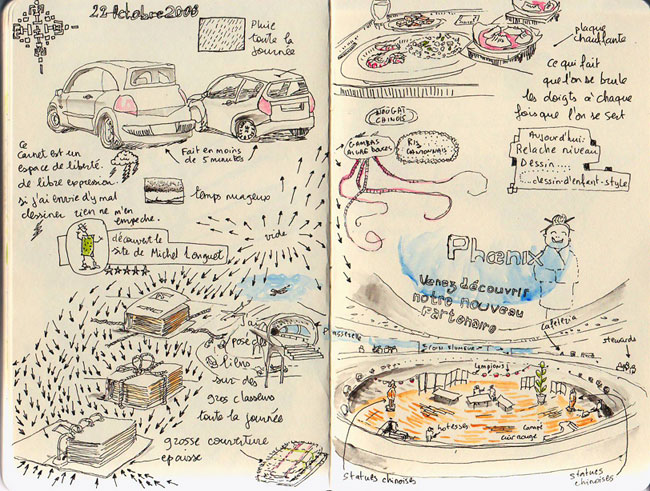 22 octobre 2006
Pluie
toute la
journée
Fait en moins
de 5 minutes
Ce
carnet est un
espace de liberté.
de libre expression
si j'ai envie d'y mal
dessiner rien ne m'en
empeche.
temps nuageux
vide
découvert le
site de Michel Longuet
J'ai
posé des
liens
sur des
gros classeurs
toute la journée
grosse couverture
epaisse
plaque
chauffante
Ce qui fait
que l'on se brule
les doigts à chaque
fois que l'on se sert
NOUGAT
CHINOIS
GAMBAS
RIZ
CANTONAIS
Aujourd'hui:
Relache niveau
Dessin....
...dessin d'enfant-style
Phoenix
Venez découvrir
notre nouveau
Partenaire
cafeteria
stewards
Passerelle
lampions
hotesses
canapé
cuir rouge
Statues chinoises
Statues
chinoises